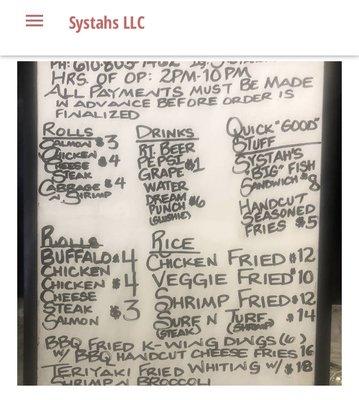 Systahs LLC
HRS. OF OP: 2PM-10PM
ALL PAYMENTS MUST BE MADE
IN ADVANCE BEFORE ORDER IS
FINALIZED
ROLLS
SALMON $3
CHICKEN
CHEESE $4
STEAK
CABBAGE $4
N SHRIMP
DRINKS
RT. BEER
PEPSI
GRAPE $1
WATER
DREAM
PUNCH $6
(SLUSHIE)
QUICK "GOOD"
STUFF
SYSTAH'S
"BIG" FISH
SANDWICH $8
HANDCUT
SEASONED
FRIES $5
ROLLS
BUFFALO $4
CHICKEN
CHICKEN $4
CHEESE
STEAK
SALMON $3
RICE
CHICKEN FRIED $12
VEGGIE FRIED $10
SHRIMP FRIED $12
SURF N TURF $14
(STEAK) (SHRIMP)
BBQ FRIED K-WING DINGS (6)
W/ BBQ HANDCUT CHEESE FRIES 16
TERIYAKI FRIED WHITING W/ $18
SHRIMP N BROCCOLI